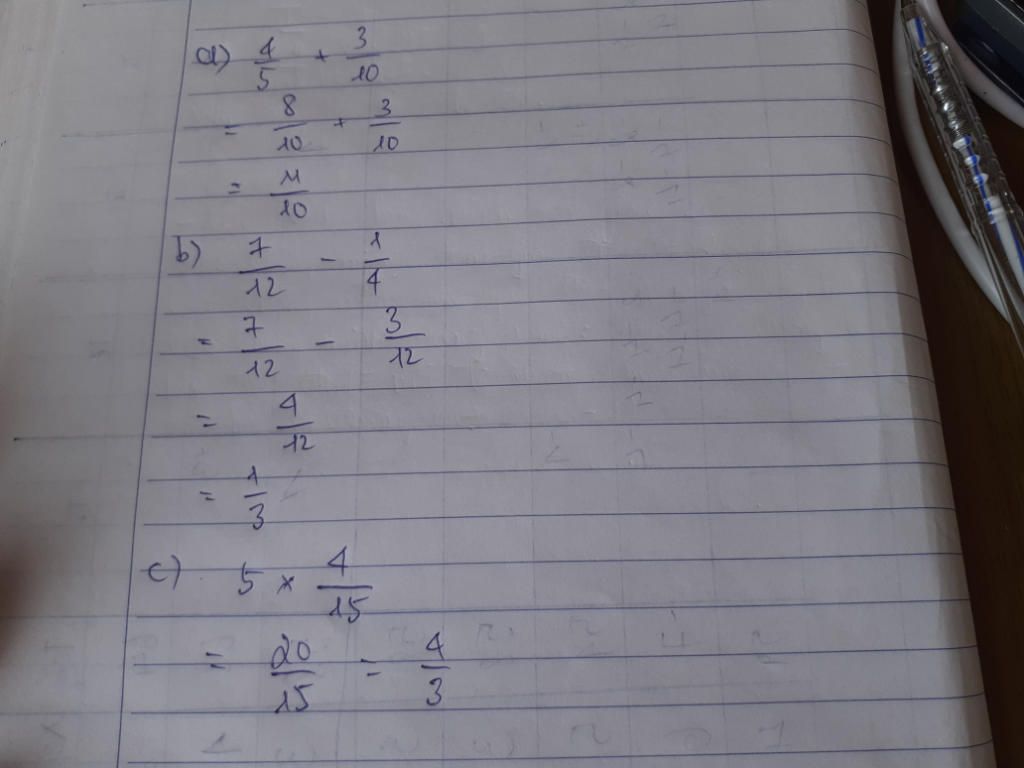 a) 4/5 + 3/10
= 8/10 + 3/10
= 11/10
b) 7/12 - 1/4
= 7/12 - 3/12
= 4/12
= 1/3
c) 5 × 4/15
= 20/15 = 4/3